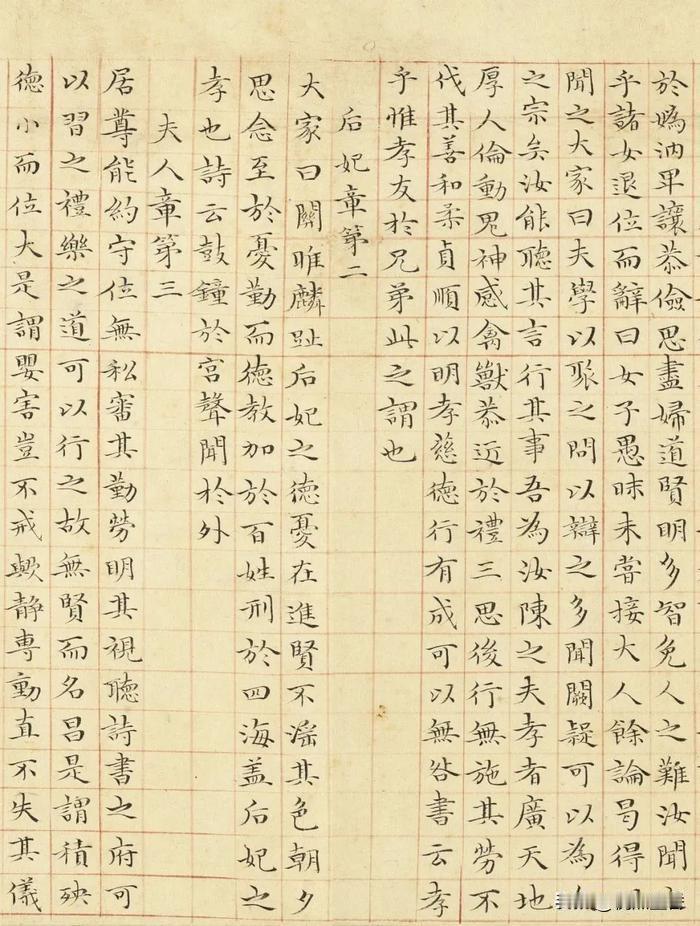 於嬀汭卑讓恭儉思盡婦道賢明多智免人之難汝聞
乎諸女退位而辭曰女子愚昧未嘗接大人餘論曷得
聞之大家曰夫學以聚之問以辯之多聞闕疑可以為
之宗矣汝能聽其言行其事吾為汝陳之夫孝者廣天地
厚人倫動鬼神感禽獸恭近於禮三思後行無施其勞不
伐其善和柔貞順以明孝慈德行有成可以無咎書云孝
乎惟孝友於兄弟此之謂也
后妃章第二
大家曰關雎麟趾后妃之德憂在進賢不滛其色朝夕
思念至於憂勤而德教加於百姓刑於四海盖后妃之
孝也詩云鼓鐘於宮聲聞於外
夫人章第三
居尊能約守位無私審其勤勞明其視聽詩書之府可
以習之禮樂之道可以行之故無賢而名昌是謂積殃
德小而位大是謂嬰害豈不戒歟静専動直不失其儀